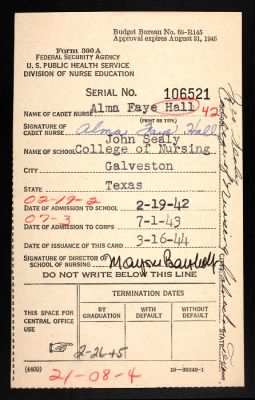 Budget Bureau No. 68-R145
Approval expires August 31, 1945
Form 300A
FEDERAL SECURITY AGENCY
U. S. PUBLIC HEALTH SERVICE
DIVISION OF NURSE EDUCATION
SERIAL NO. 106521
Alma Faye Hall 42
NAME OF CADET NURSE
(PRINT OR TYPE)
SIGNATURE OF
CADET NURSE Alma Faye Hall
John Sealy
NAME OF SCHOOL College of Nursing
CITY Galveston
STATE Texas
02-19-2
DATE OF ADMISSION TO SCHOOL 2-19-42
07-3
DATE OF ADMISSION TO CORPS 7-1-43
DATE OF ISSUANCE OF THIS CARD 3-16-44
SIGNATURE OF DIRECTOR
OF SCHOOL OF NURSING
DO NOT WRITE BELOW THIS LINE
THIS SPACE FOR
CENTRAL OFFICE
USE
TERMINATION DATES
BY
GRADUATION
WITH
DEFAULT
WITHOUT
DEFAULT
2-26-45
(4403)
21-08-4